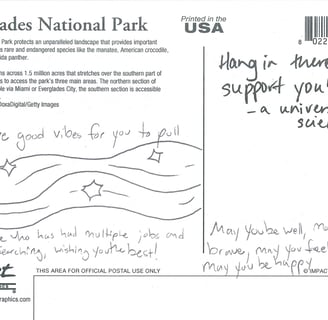 ades National Park
Park protects an unparalleled landscape that provides important
rare and endangered species like the manatee, American crocodile,
ida panther.
ns across 1.5 million acres that stretches over the southern part of
s to access the park's three main areas. The northern section of
ble via Miami or Everglades City, the southern section is accessible
DoxaDigital/Getty Images
Printed in the
USA
8
022
Hang in there
support you!
- a univer
scie
e good vibes for you to pull
e who has had multiple jobs and
earching, wishing you the best!
May you be well, ma
brave, may you feel
may you be happy
THIS AREA FOR OFFICIAL POSTAL USE ONLY
© IMPAC
graphics.com